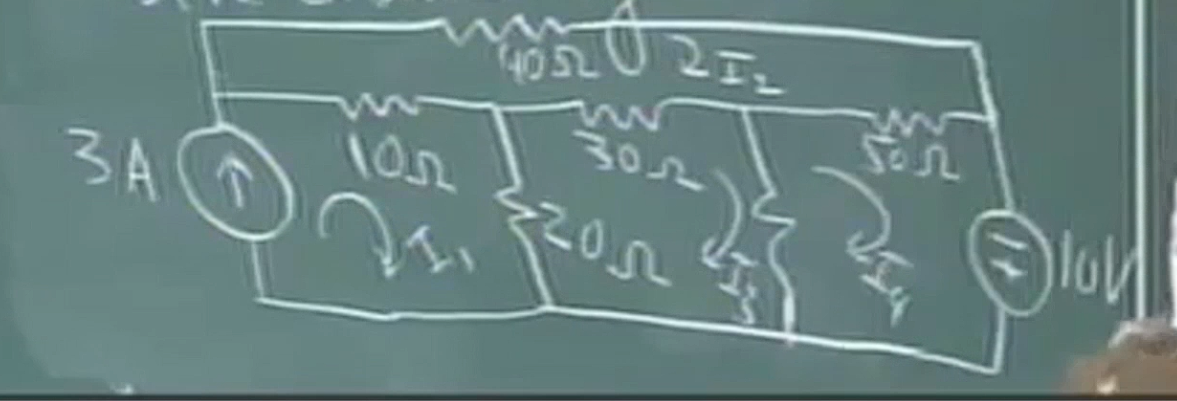 40Ω 2I₂
3A 10Ω 30Ω 50Ω
I₁ 20Ω I₃ I₄ 10V